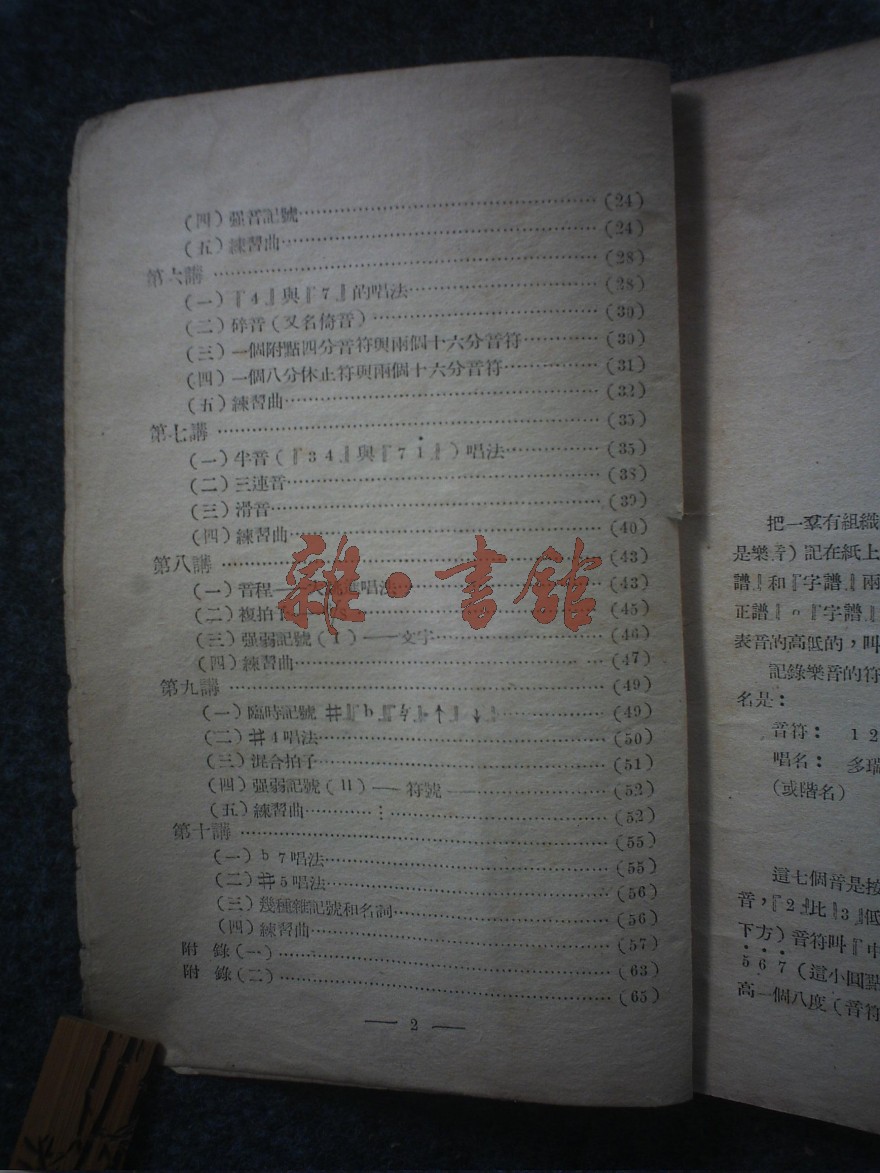 (四)强音記號……(24)
(五)練習曲……(24)
第六講……(28)
(一)『4』與『7』的唱法……(28)
(二)碎音(又名倚音)……(30)
(三)一個附點四分音符與兩個十六分音符……(30)
(四)一個八分休止符與兩個十六分音符……(31)
(五)練習曲……(32)
第七講……(35)
(一)半音(『3 4』與『7 i』)唱法……(35)
(二)三連音……(38)
(三)滑音……(39)
(四)練習曲……(40)
第八講……(43)
(一)音程——進唱法……(43)
(二)複拍子……(45)
(三)强弱記號(I)——文字……(46)
(四)練習曲……(47)
第九講……(49)
(一)臨時記號……(49)
(二)#4唱法……(50)
(三)混合拍子……(51)
(四)强弱記號(II)——符號……(52)
(五)練習曲……(52)
第十講……(55)
(一)b7唱法……(55)
(二)#5唱法……(56)
(三)幾種雜記號和名詞……(56)
(四)練習曲……(57)
附 錄(一)……(63)
附 錄(二)……(65)
— 2 —
雜·書館
把一羣有組織
是樂音)記在紙上
譜』和『字譜』兩
正譜』。『字譜』
表音的高低的,叫
記錄樂音的符
名是:
音符: 1 2
唱名: 多瑞
(或階名)
這七個音是按
音,『2』比『3』低
下方)音符叫『中
5 6 7(這小圓點
高一個八度(音符